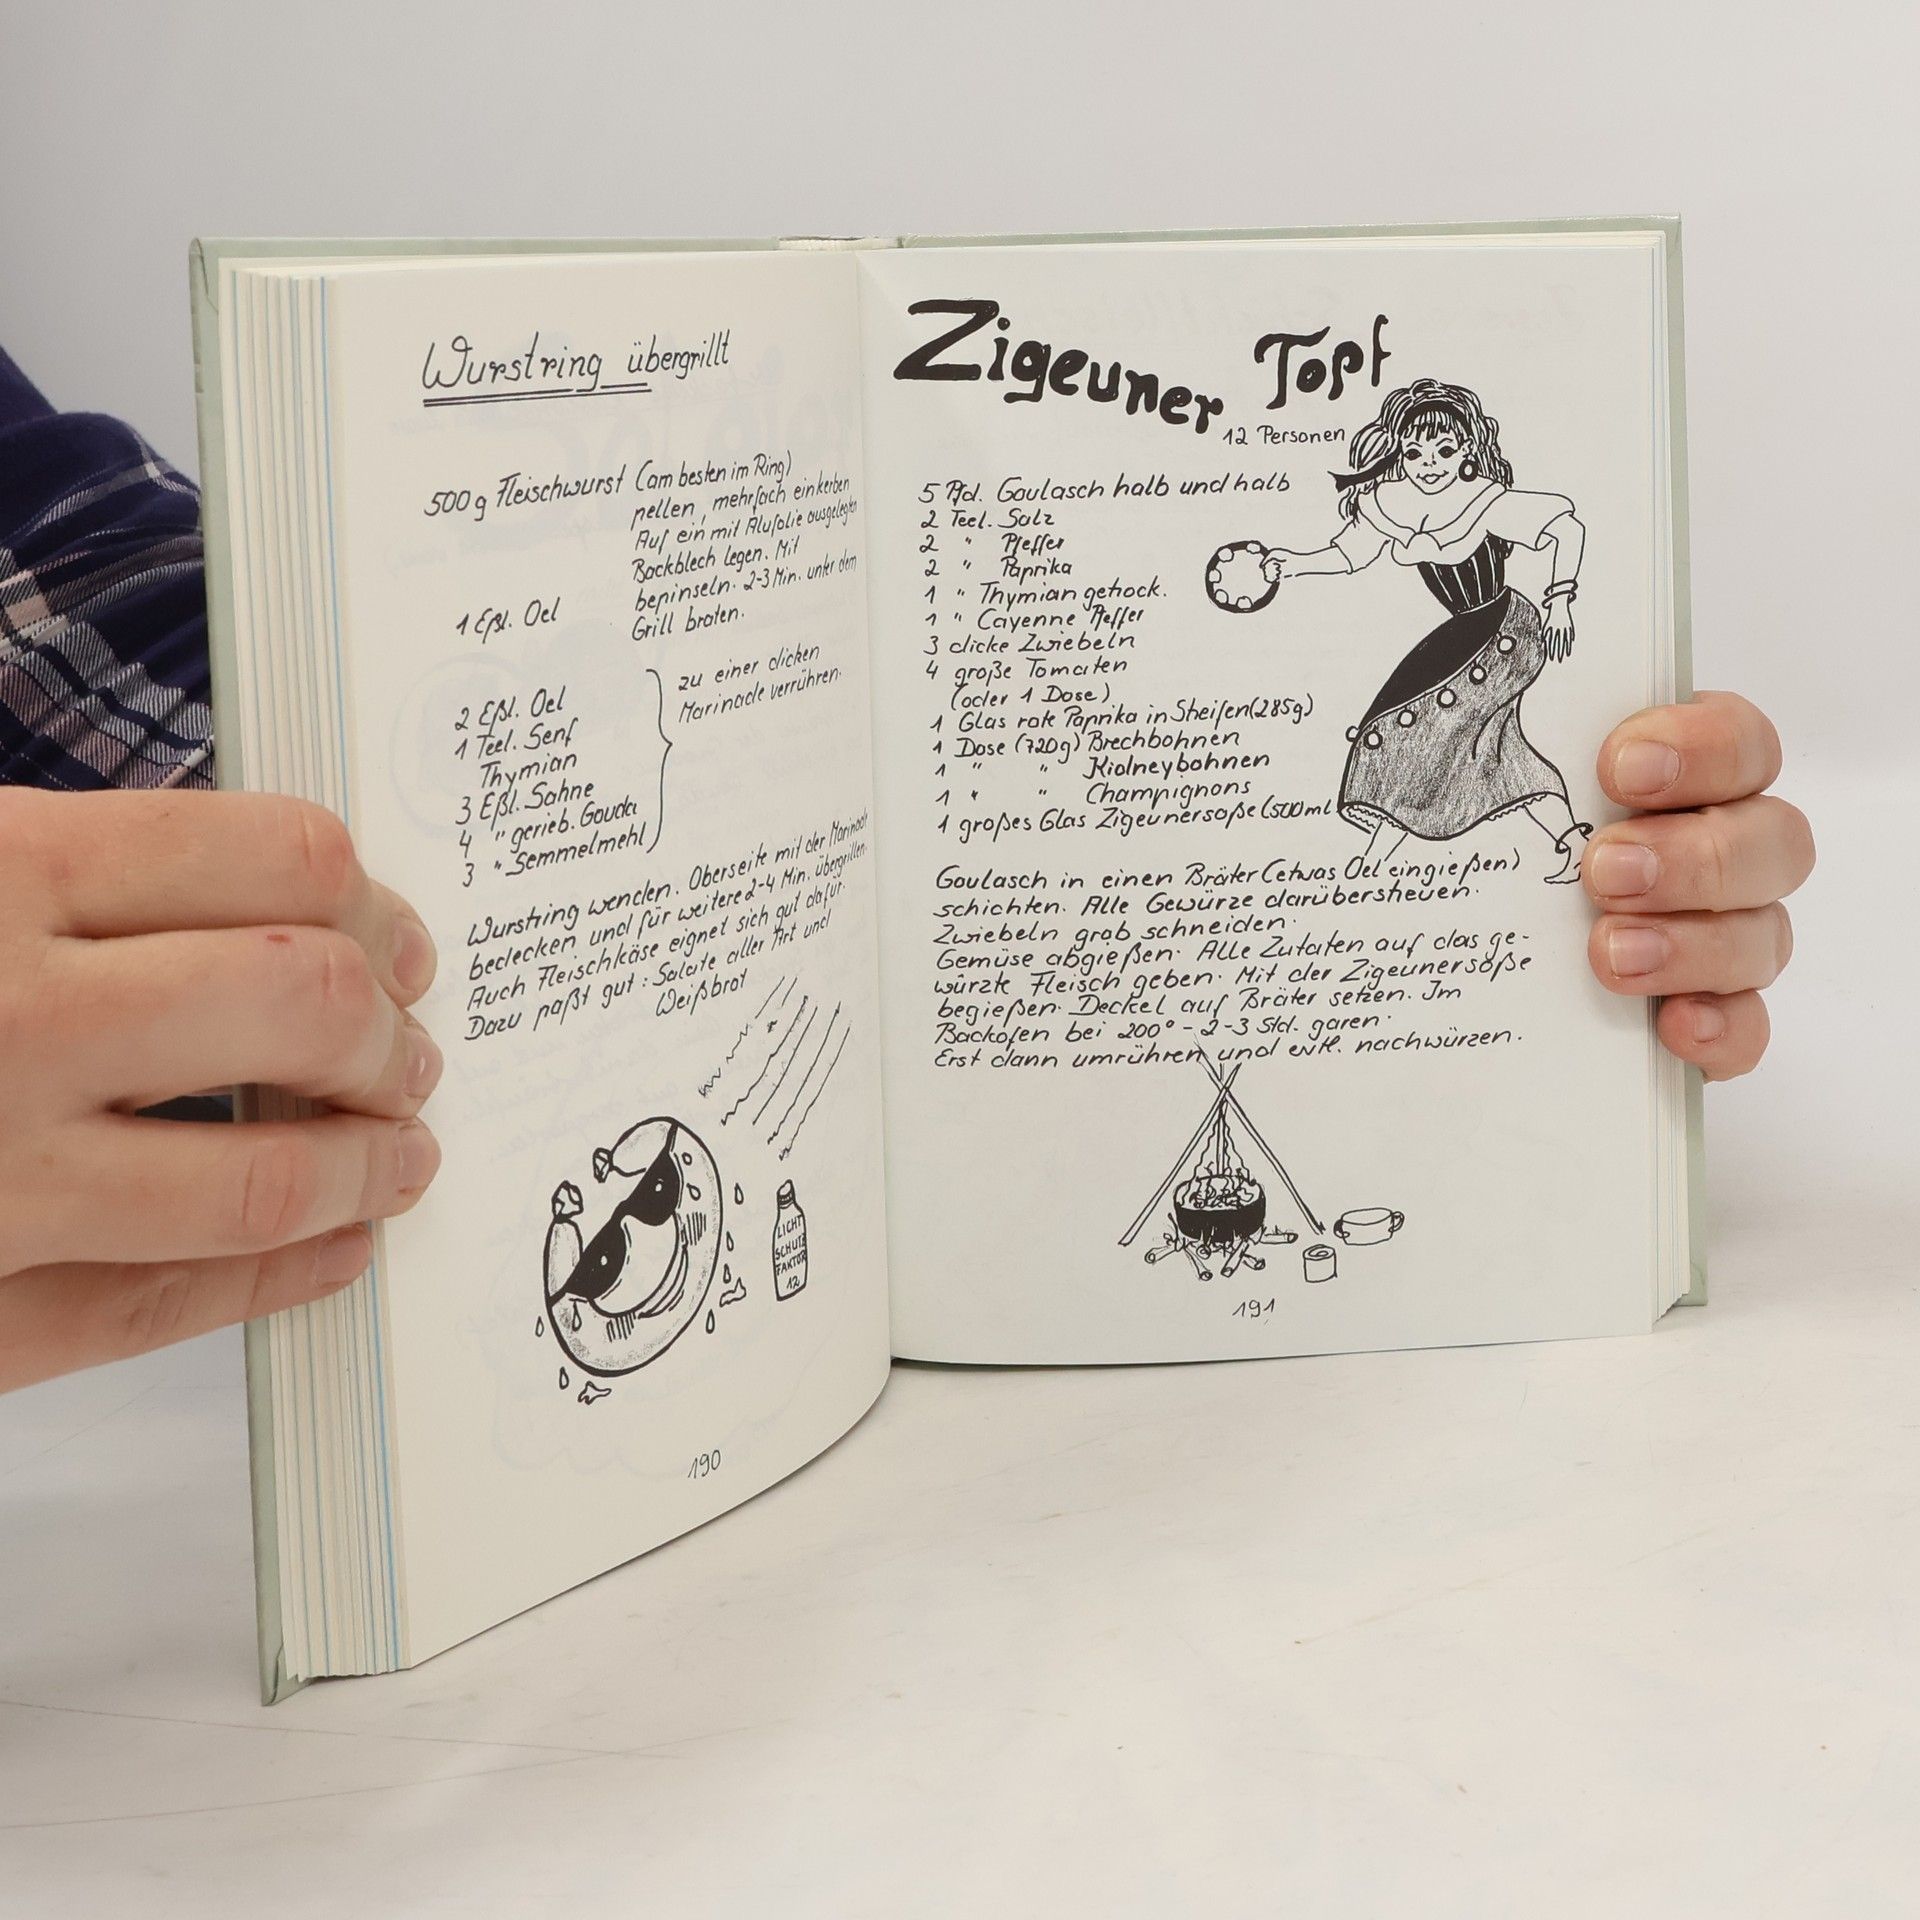 Wurstring übergrillt
500 g Fleischwurst (am besten im Ring)
pellen, mehrfach einkerben
Auf ein mit Alufolie ausgelegten
Backblech legen. Mit
1 Eßl. Oel bepinseln. 2-3 Min. unter dem
Grill braten.
2 Eßl. Oel
1 Teel. Senf
Thymian
3 Eßl. Sahne
4 " gerieb. Gouda
3 " Semmelmehl
zu einer dicken
Marinade verrühren.
Wurstring wenden. Oberseite mit der Marinade
bedecken und für weitere 2-4 Min. übergrillen.
Auch Fleischkäse eignet sich gut dafür.
Dazu paßt gut: Salate aller Art und
Weißbrot
LICHT
SCHUTZ
FAKTOR
12
190
Zigeuner Topf
12 Personen
5 Pfd. Goulasch halb und halb
2 Teel. Salz
2 " Pfeffer
2 " Paprika
1 " Thymian gehack.
1 " Cayenne Pfeffer
3 dicke Zwiebeln
4 große Tomaten
(oder 1 Dose)
1 Glas rote Paprika in Streifen (285g)
1 Dose (720g) Brechbohnen
1 " " Kidneybohnen
1 " " Champignons
1 großes Glas Zigeunersoße (500ml
Goulasch in einen Bräter (etwas Oel eingießen)
schichten. Alle Gewürze darüberstreuen.
Zwiebeln grob schneiden.
Gemüse abgießen. Alle Zutaten auf das ge-
würzte Fleisch geben. Mit der Zigeunersoße
begießen. Deckel auf Bräter setzen. Im
Backofen bei 200° - 2-3 Std. garen.
Erst dann umrühren und evtl. nachwürzen.
191